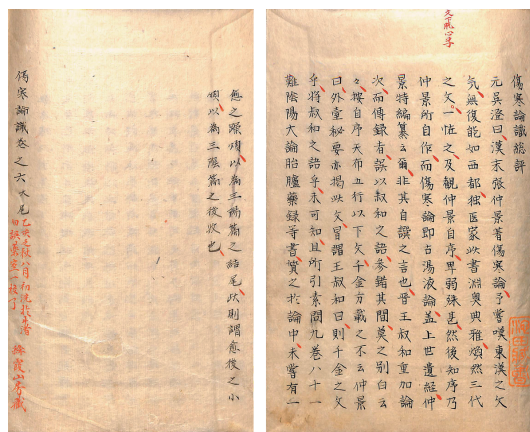 傷寒論識總評
元吳澄曰漢末張仲景著傷寒論予嘗嘆東漢之文
氣無復能如西都獨医家此書淵奧典雅煥然三代
之文一恠之及觀仲景自序卑弱殊甚然後知序乃
仲景所自作而傷寒論即古湯液論蓋上世遺經仲
景特編纂云爾非其自譔之言也晉王叔和重加論
次而傳錄者誤以叔和之語參錯其間莫之別白云
々按自序天布五行以下文千金方載之不云仲景
曰外臺秘要亦揭此文冒謂王叔和曰則千金之文
乎將叔和之語乎未可知且所引素問九卷八十一
難陰陽大論胎臚藥録等書實之於論中未嘗有一
愈之
以為三陽篇之結尾此則謂愈後之小
煩以為三陰篇之後收也
傷寒論識卷之六大尾